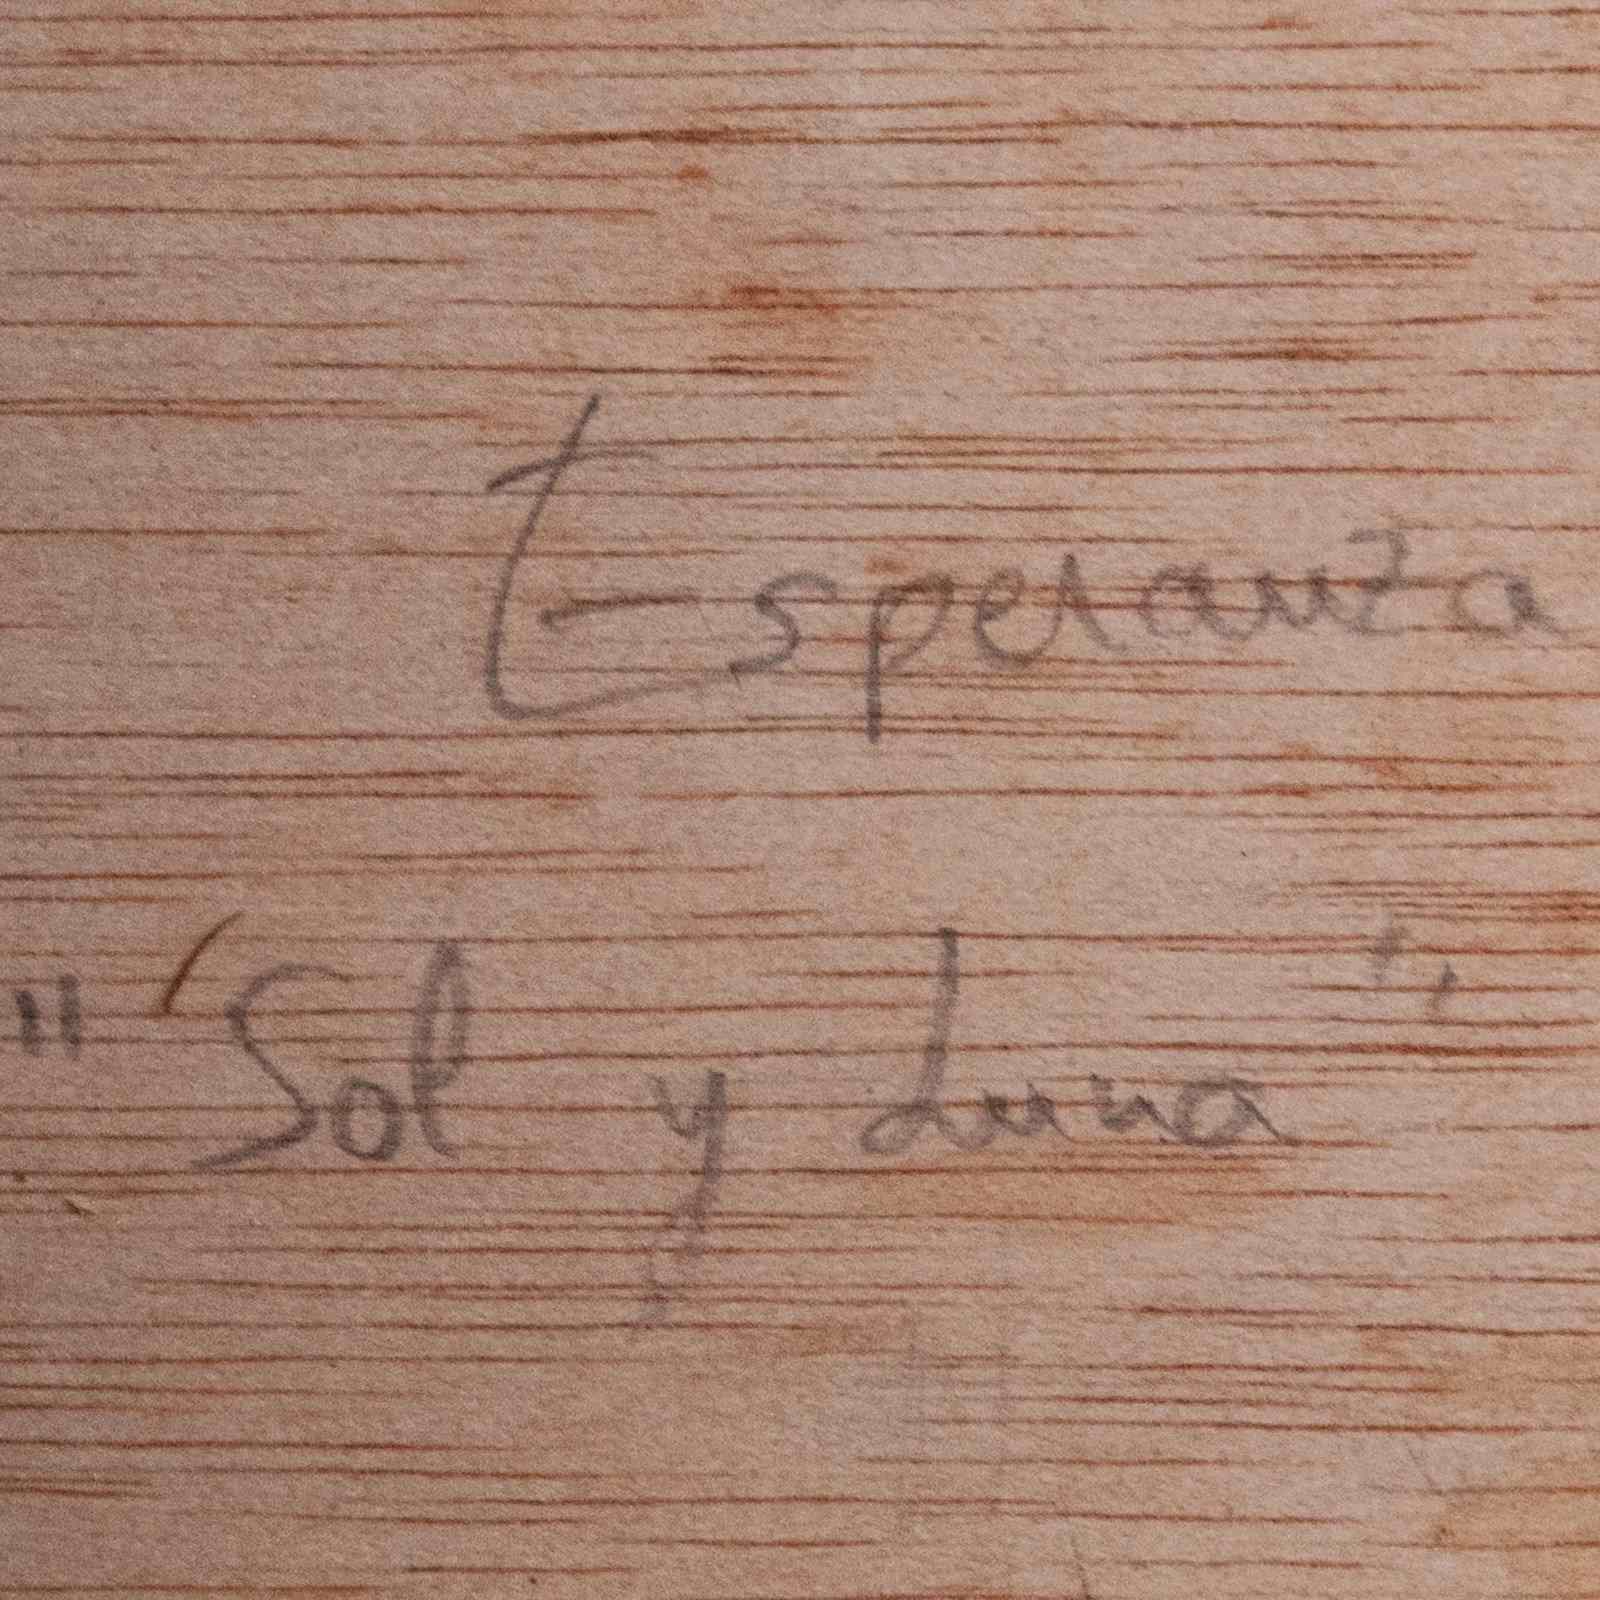 Esperanza
"Sol y Luna"